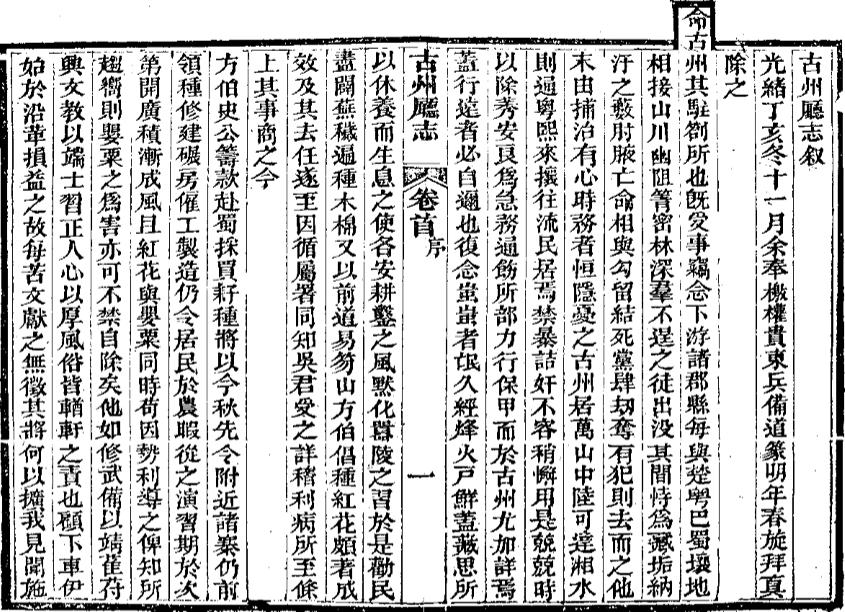 古州廳志叙
光緒丁亥冬十一月余奉檄權貴東兵備道篆明年春旋拜真
除之
命古州其駐劄所也旣受事竊念下游諸郡縣每與楚粵巴蜀壤地
相接山川幽阻箐密林深羣不逞之徒出没其間恃爲藏垢納
汙之藪肘腋亡命相與勾留結死黨肆刼奪有犯則去而之他
末由捕治有心時務者恒隱憂之古州居萬山中陸可達湘水
則通粵熙來攘往流民居焉禁暴詰奸不容稍懈用是兢兢時
以除莠安良爲急務通飭所部力行保甲而於古州尤加詳焉
蓋行遠者必自邇也復念蚩蚩者氓久經烽火戸鮮蓋藏思所
古州廳志
卷首
序
一
以休養而生息之使各安耕鑿之風默化囂陵之習於是勸民
盡闢蕪穢遍種木棉又以前道易笏山方伯倡種紅花頗著成
效及其去任遂至因循屬署同知吳君受之詳稽利病所至條
上其事商之今
方伯史公籌款赴蜀採買籽種將以今秋先令附近諸寨仍前
領種修建碾房僱工製造仍令居民於農暇從之演習期於次
第開廣積漸成風且紅花與罌粟同時苟因勢利導之俾知所
趨嚮則罌粟之爲害亦可不禁自除矣他如修武備以靖萑苻
興文教以端士習正人心以厚風俗皆輶軒之責也顧下車伊
始於沿革損益之故每苦文獻之無徵其將何以擴我見聞施